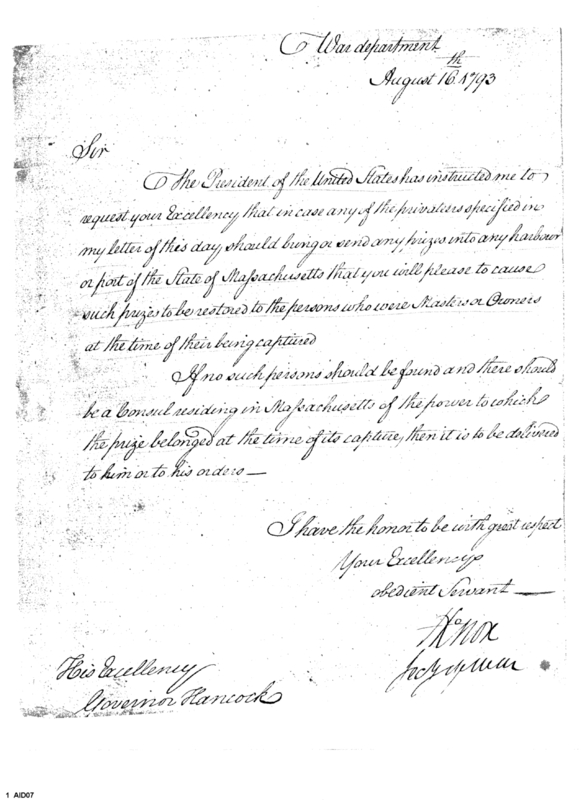 War department
August 16.th 1793
Sir
The President of the United States has instructed me to
request your Excellency that in case any of the privatiers specified in
my letter of this day, should bring or send any prizes into any harbour
or port of the State of Massachusetts that you will please to cause
such prizes to be restored to the persons who were Masters or Owners
at the time of their being captured
If no such persons should be found and there should
be a Consul residing in Massachusetts of the power to which
the prize belonged at the time of its capture, then it is to be delivered
to him or to his orders—
I have the honor to be with great respect
Your Excellency
obedient Servant—
HKnox
Secy of War
His Excellency
Governor Hancock
1 AID07